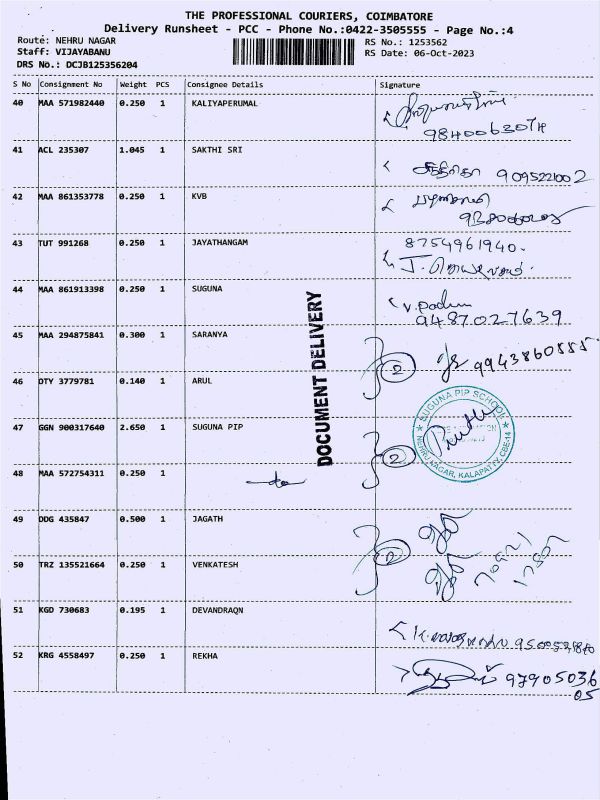 THE PROFESSIONAL COURIERS, COIMBATORE
Delivery Runsheet - PCC - Phone No.:0422-3505555 - Page No.:4
Route: NEHRU NAGAR
Staff: VIJAYABANU
DRS No.: DCJB125356204
RS No.: 1253562
RS Date: 06-Oct-2023
S No Consignment No Weight PCS Consignee Details Signature
40 MAA 571982440 0.250 1 KALIYAPERUMAL
41 ACL 235307 1.045 1 SAKTHI SRI
9095221002
42 MAA 861353778 0.250 1 KVB
43 TUT 991268 0.250 1 JAYATHANGAM
8754961940.
44 MAA 861913398 0.250 1 SUGUNA
9487027639
45 MAA 294875841 0.300 1 SARANYA
2 9943860555
46 DTY 3779781 0.140 1 ARUL
47 GGN 900317640 2.650 1 SUGUNA PIP
2
SUGUNA PIP SCHOOL
NEHRU NAGAR, KALAPATTY, CBE-14
48 MAA 572754311 0.250 1
49 DDG 435847 0.500 1 JAGATH
2
50 TRZ 135521664 0.250 1 VENKATESH
51 KGD 730683 0.195 1 DEVANDRAQN
52 KRG 4558497 0.250 1 REKHA
9790503605
DOCUMENT DELIVERY